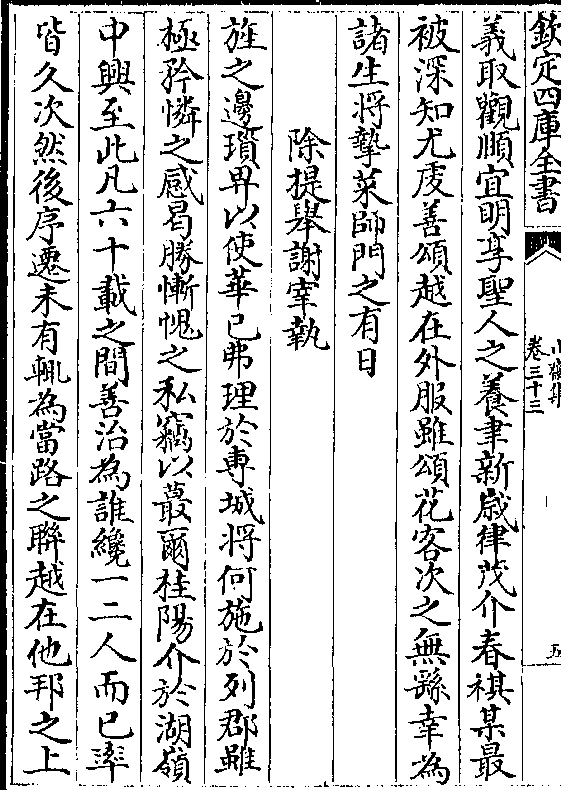 欽定四庫全書
卷三十三
五
義取觀頤宜明享聖人之養聿新歲律茂介春祺某最
被深知尤虔善頌越在外服雖頌花客次之無繇幸為
諸生將摯菜師門之有日
除提舉謝宰執
旌之邊瑣畀以使華已弗理於專城將何施於列郡雖
極矜憐之感曷勝慚愧之私竊以蕞爾桂陽介於湖嶺
中興至此凡六十載之間善治為誰纔一二人而已率
皆久次然後序遷未有輒為當路之聯越在他邦之上